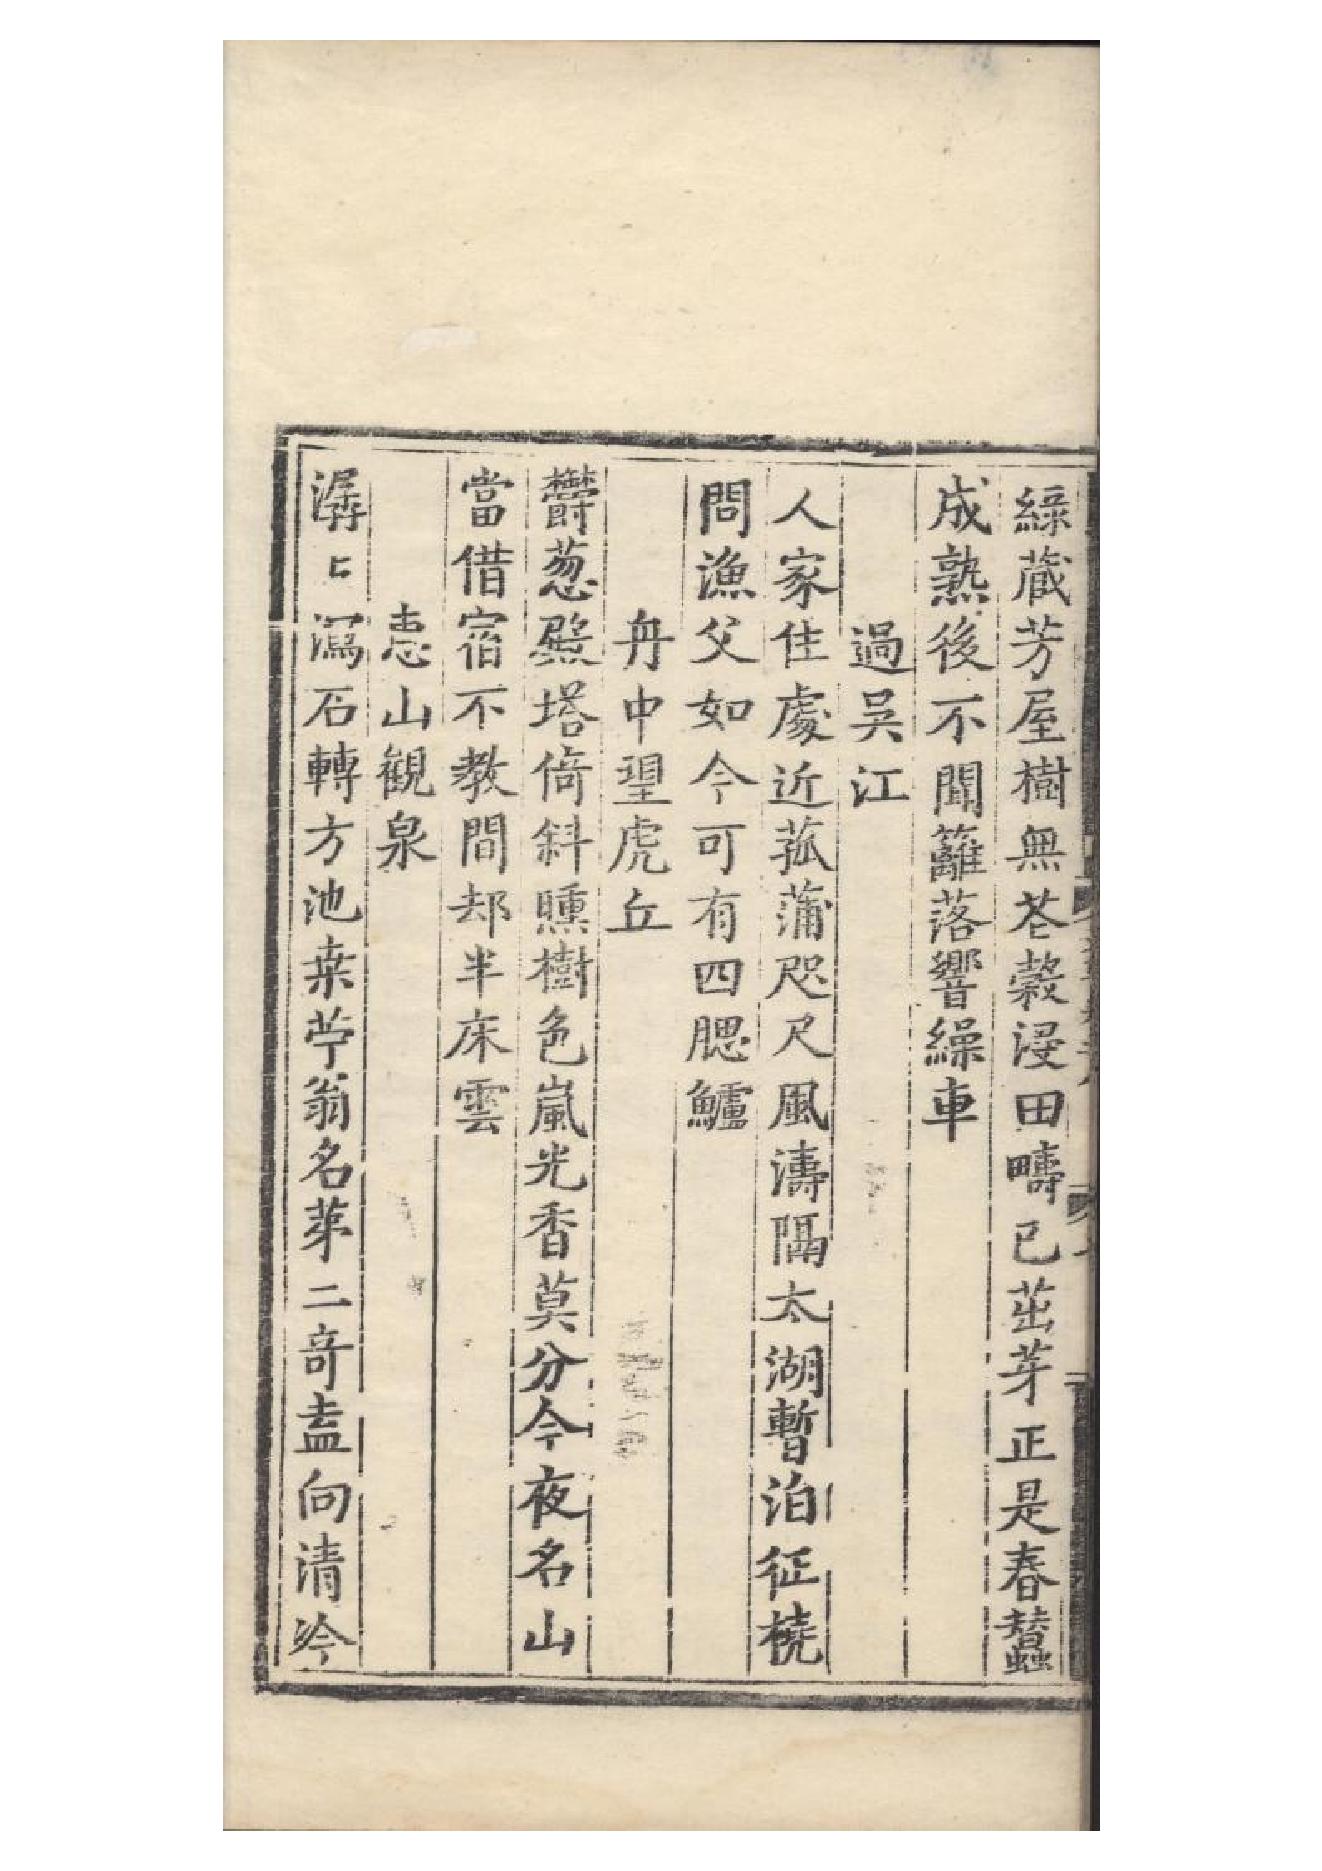 綠藏芳屋樹無芲穀浸田疇已茁芽正是春蠶
成熟後不聞籬落響繰車
過吳江
人家住處近菰蒲咫尺風濤隔太湖暫泊征橈
問漁父如今可有四腮鱸
舟中望虎丘
欝葱殿塔倚斜曛樹色嵐光香莫分今夜名山
當借宿不教間却半床雲
惠山觀泉
潺〻瀉石轉方池桒苧翁名苐二竒盍向清泠